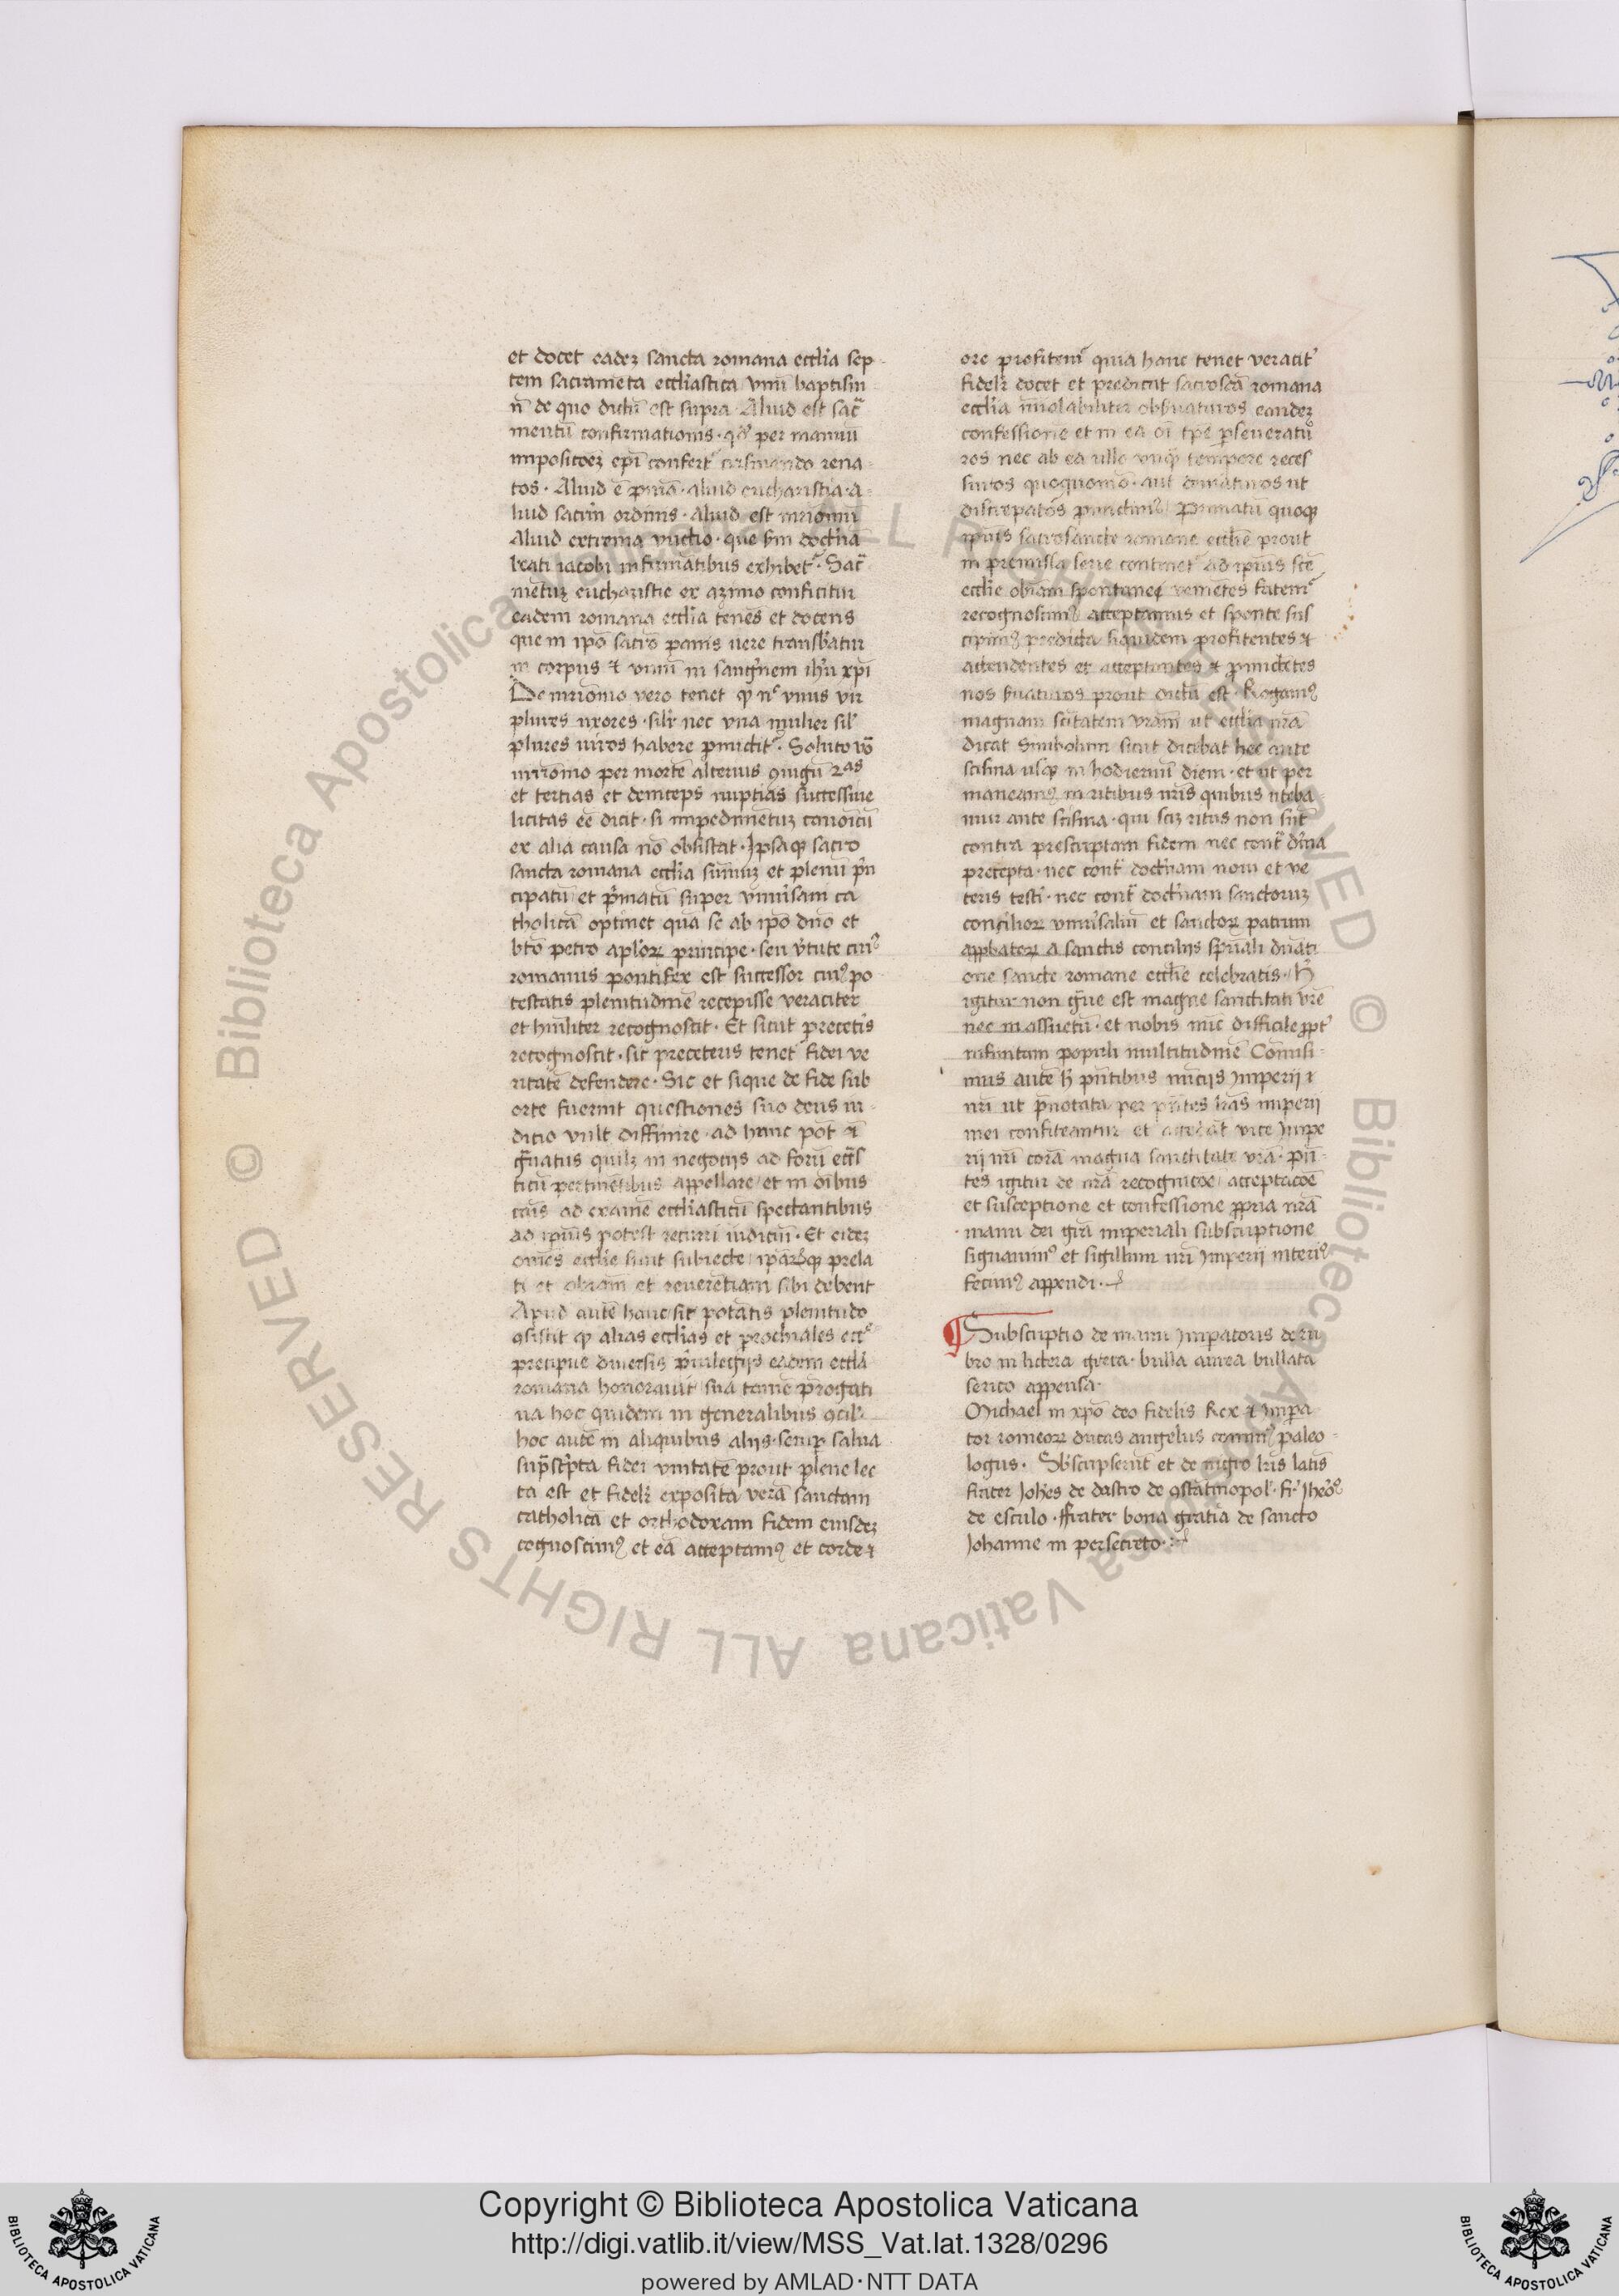 et docet eadeꝫ sancta romana eccl̄ia sep
tem sacram̄eta eccl̄iastica vnū baptism
ū de quo dictū est supra. Aliud est sac̄
mentū confirmationis. qd̓ per manuū
impositōeꝫ epī confert᷑ crismando rena
tos. Aliud ē pn̄ia. aliud eucharistia. a
liud sacrm̄ ordinis. Aliud est mr̄ioniū
Aliud extrema vnctio. que sm̄ doctr̄nā
beati iacobi infirmātibus exhibet᷑. Sac̄
mētuꝫ eucharistie ex aꝫimo conficitur
eadem romana eccl̄ia tenēs et docens
que in ip̄o sacr̄o panis uere transb̓atur
in corpus ⁊ vinū in sangu̓nem ih̄u xp̄i
De mr̄ionio vero tenet ꝙ n̄ vnus vir
plures uxores. sil̓r nec vna mulier sil̓
plures uiros habere ꝑmictit᷑. Soluto v̄o
mr̄ionio per mortē alterius ꝯiugū 2as
et tertias et deinceps nuptias successiue
licitas eē dicit. si impedimētuꝫ canoicū
ex alia causa nō obsistat. Ipsaqꝫ sacro
sancta romana eccl̄ia sūmuꝫ et plenū p̓n
cipatū et p̓matū super vniu̓sam ca
tholicā optinet qua se ab ip̄o dn̄o et
bt̄o petro apl̓oꝝ principe. seu v̓tute cuiꝰ
romanus pontifex est successor cuiꝰ po
testatis plenitudinē recepisse veraciter
et hūiliter recognoscit. Et sicut p̄ceteris
recognoscit. sic preceteris tenet᷑ fidei ve
ritatē defendere. Sic et sique de fide sub
orte fuerint questiones suo deus iu
dicio vult diffinire. ad hanc pōt ī
gu̓atus quilꝫ in negocijs ad forū eccl̄s
ticū pertinētibus appellare et in oībus
cāis ad examē eccl̄iasticū spectantibus
ad ip̄ius potest recurri iudiciū. Et eideꝫ
omēs eccl̄ie sunt subiecte ip̄aꝝqꝫ prela
ti et obiam̄ et reuerētiam sibi debent
Apud autē hanc sit potātis plenitudo
ꝯsistit ꝙ alias eccl̄ias et prochiales etc̄
precipue diuersis p̓uilegijs eadem eccl̄a
romana honorauit sua tam̄e p̄rogati
ua hoc quidem in generalibus ꝯcil̓.
hoc autē in aliquibus alijs. semꝑ salua
sup̄sc̓pta fidei vnitatē prout plene lec
ta est et fidelr̄ exposita verā sanctam
catholicā et orthodoxam fidem eiusdeꝫ
cognoscimꝰ et eā acceptamꝰ et corde ⁊
ore profitem᷑ quia hanc tenet veracit᷑
fidelr̄ docet et predicat sacroscā romana
eccl̄ia inuiolabiliter obs̓uaturos eandeꝫ
confessionē et in ea oī tp̄e ꝑseueratu
ros nec ab ea ullo vnqꝫ tempore reces
suros quoquomō. aut deuiaturos ut
discrepatōs Primatū quoqꝫ
ip̄ius sacrosancte romane eccl̄ie prout
in premissa serie continet᷑ ad ip̄ius sc̄e
eccl̄ie obiam̄ spontanee venietes fatem᷑
recognoscimꝰ acceptamus et sponte sus
cipimꝰ predicta siquidem profitentes ⁊
actendentes et acceptantes ⁊ ꝓmictētes
nos s̓uaturos prout dictū est. Rogamꝰ
magnam sc̄itatem vr̄am ut eccl̄ia nr̄a
dicat Simbolum sicut dicebat hec ante
scisma usqꝫ in hodiernū diem. et ut per
maneamꝰ in ritibus nr̄is quibus uteba
mur ante scisma. qui sciꝫ ritus non sūt
contra prescriptam fidem nec cont̄ di̓na
precepta. nec cont̄ doctr̄nam noui et ve
teris testi. nec cont̄ doctr̄nam sanctoruꝫ
concilioꝝ vniu̓saliū et sanctoꝝ patrum
appbatoꝝ a sanctis concilijs sp̄uali dn̄ati
one sancte romane eccl̄ie celebratis. H̓
igitur non gu̓e est magne sanctitati vr̄e
nec inassuetū. et nobis nūc difficile ꝓpt᷑
infinitam populi multitudinē Comisi
mus autē h̓ pn̄tibus nūcijs Imperij ⁊
nr̄i ut p̄notata per pn̄tes lr̄as imperij
mei confiteantur et vice Impe
rij nr̄i corā magna sanctitate vr̄a. pn̄
tes igitur de nr̄a recognicōe acceptacōe
et susceptione et confessione ꝓpria nr̄a
manu dei gr̄a imperiali subscriptione
signauimꝰ et sigillum nr̄i Imperij interiꝰ
fecimꝰ appendi.
Subscriptio de manu Imperatoris de ru
bro in lictera greca. bulla aurea bullata
serico appensa.
Michael in xp̄o deo fidelis Rex ⁊ Impa
tor romeoꝝ ducas angelus comnꝰ paleo
logus. Sb̓scripserūt et de nigro lr̄is latīs
frater Joh̓es de dastro de ꝯstātinopol̓. fr̄
de esculo. ffrater bona gratia de sancto
Johanne in persecreto.
Copyright © Biblioteca Apostolica Vaticana
http://digi.vatlib.it/view/MSS_Vat.lat.1328/0296
powered by AMLAD·NTT DATA
BIBLIOTECA APOSTOLICA VATICANA
BIBLIOTECA APOSTOLICA VATICANA
© Biblioteca Apostolica Vaticana ALL RIGHTS RESERVED
© Biblioteca Apostolica Vaticana ALL RIGHTS RESERVED